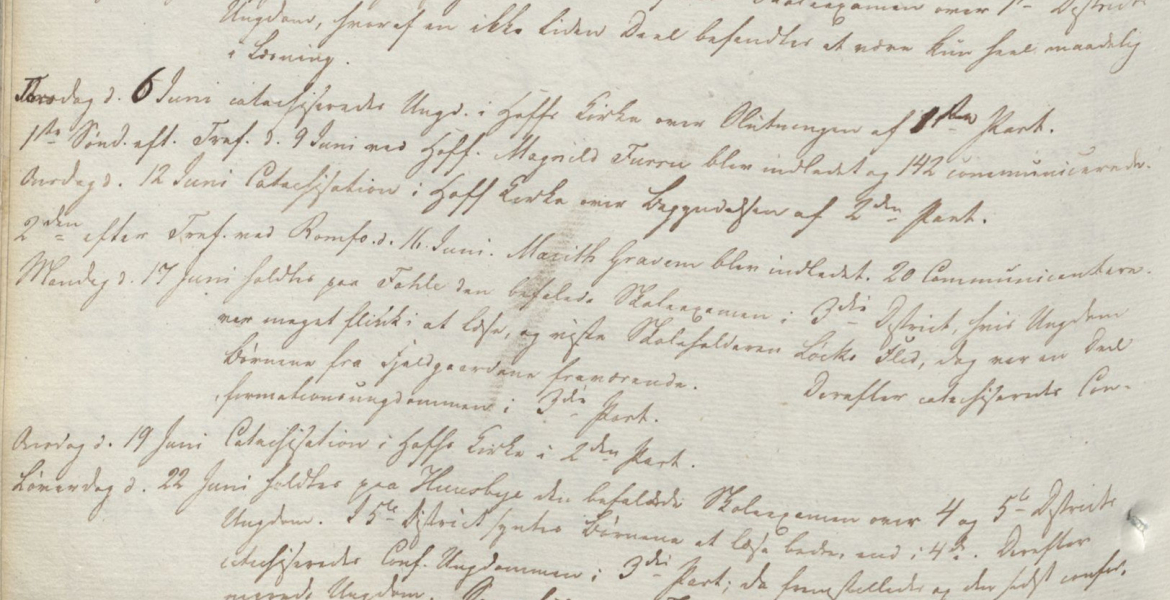 Skoleexamen over 1ste Districts
Ungdom, hvoraf en ikke liden Deel befandtes at være kun heel maadelig
i Læsning.
Torsdag d. 6 Juni catechiseredes Ungd. i Hoffs Kirke over Slutningen af 1ste Part.
1ste Sønd. eft. Tref. d. 9 Juni ved Hoff. Magnild Furru blev indledet og 142 communicerede.
Onsdag d. 12 Juni Catechisation i Hoff Kirke over Begyndelsen af 2den Part.
2den efter Tref. ved Romfo d. 16 Juni. Marith Gravem blev indledet. 20 Communicentere.
Mandag d. 17 Juni holdtes paa Fahle den befalede Skoleexamen i 3die District, hvis Ungdom
var meget flink i at læse, og viste Skoleholderen Løcke Flid, dog var en Deel
Børnene fra Fjeldgaardene fraværende. Derefter catechiseredes Con-
firmationsungdommen i 3die Part.
Onsdag d. 19 Juni Catechisation i Hoffs Kirke i 2den Part.
Løverdag d. 22 Juni holdtes paa Huusbye den befalede Skoleexamen over 4 og 5te Districts
Ungdom. I 5te District syntes Børnene at læse bedre end i 4de. Derefter
catechiseredes Conf. Ungdommen i 3die Part; da fremstilledes og den sidst confir-
merede Ungdom.